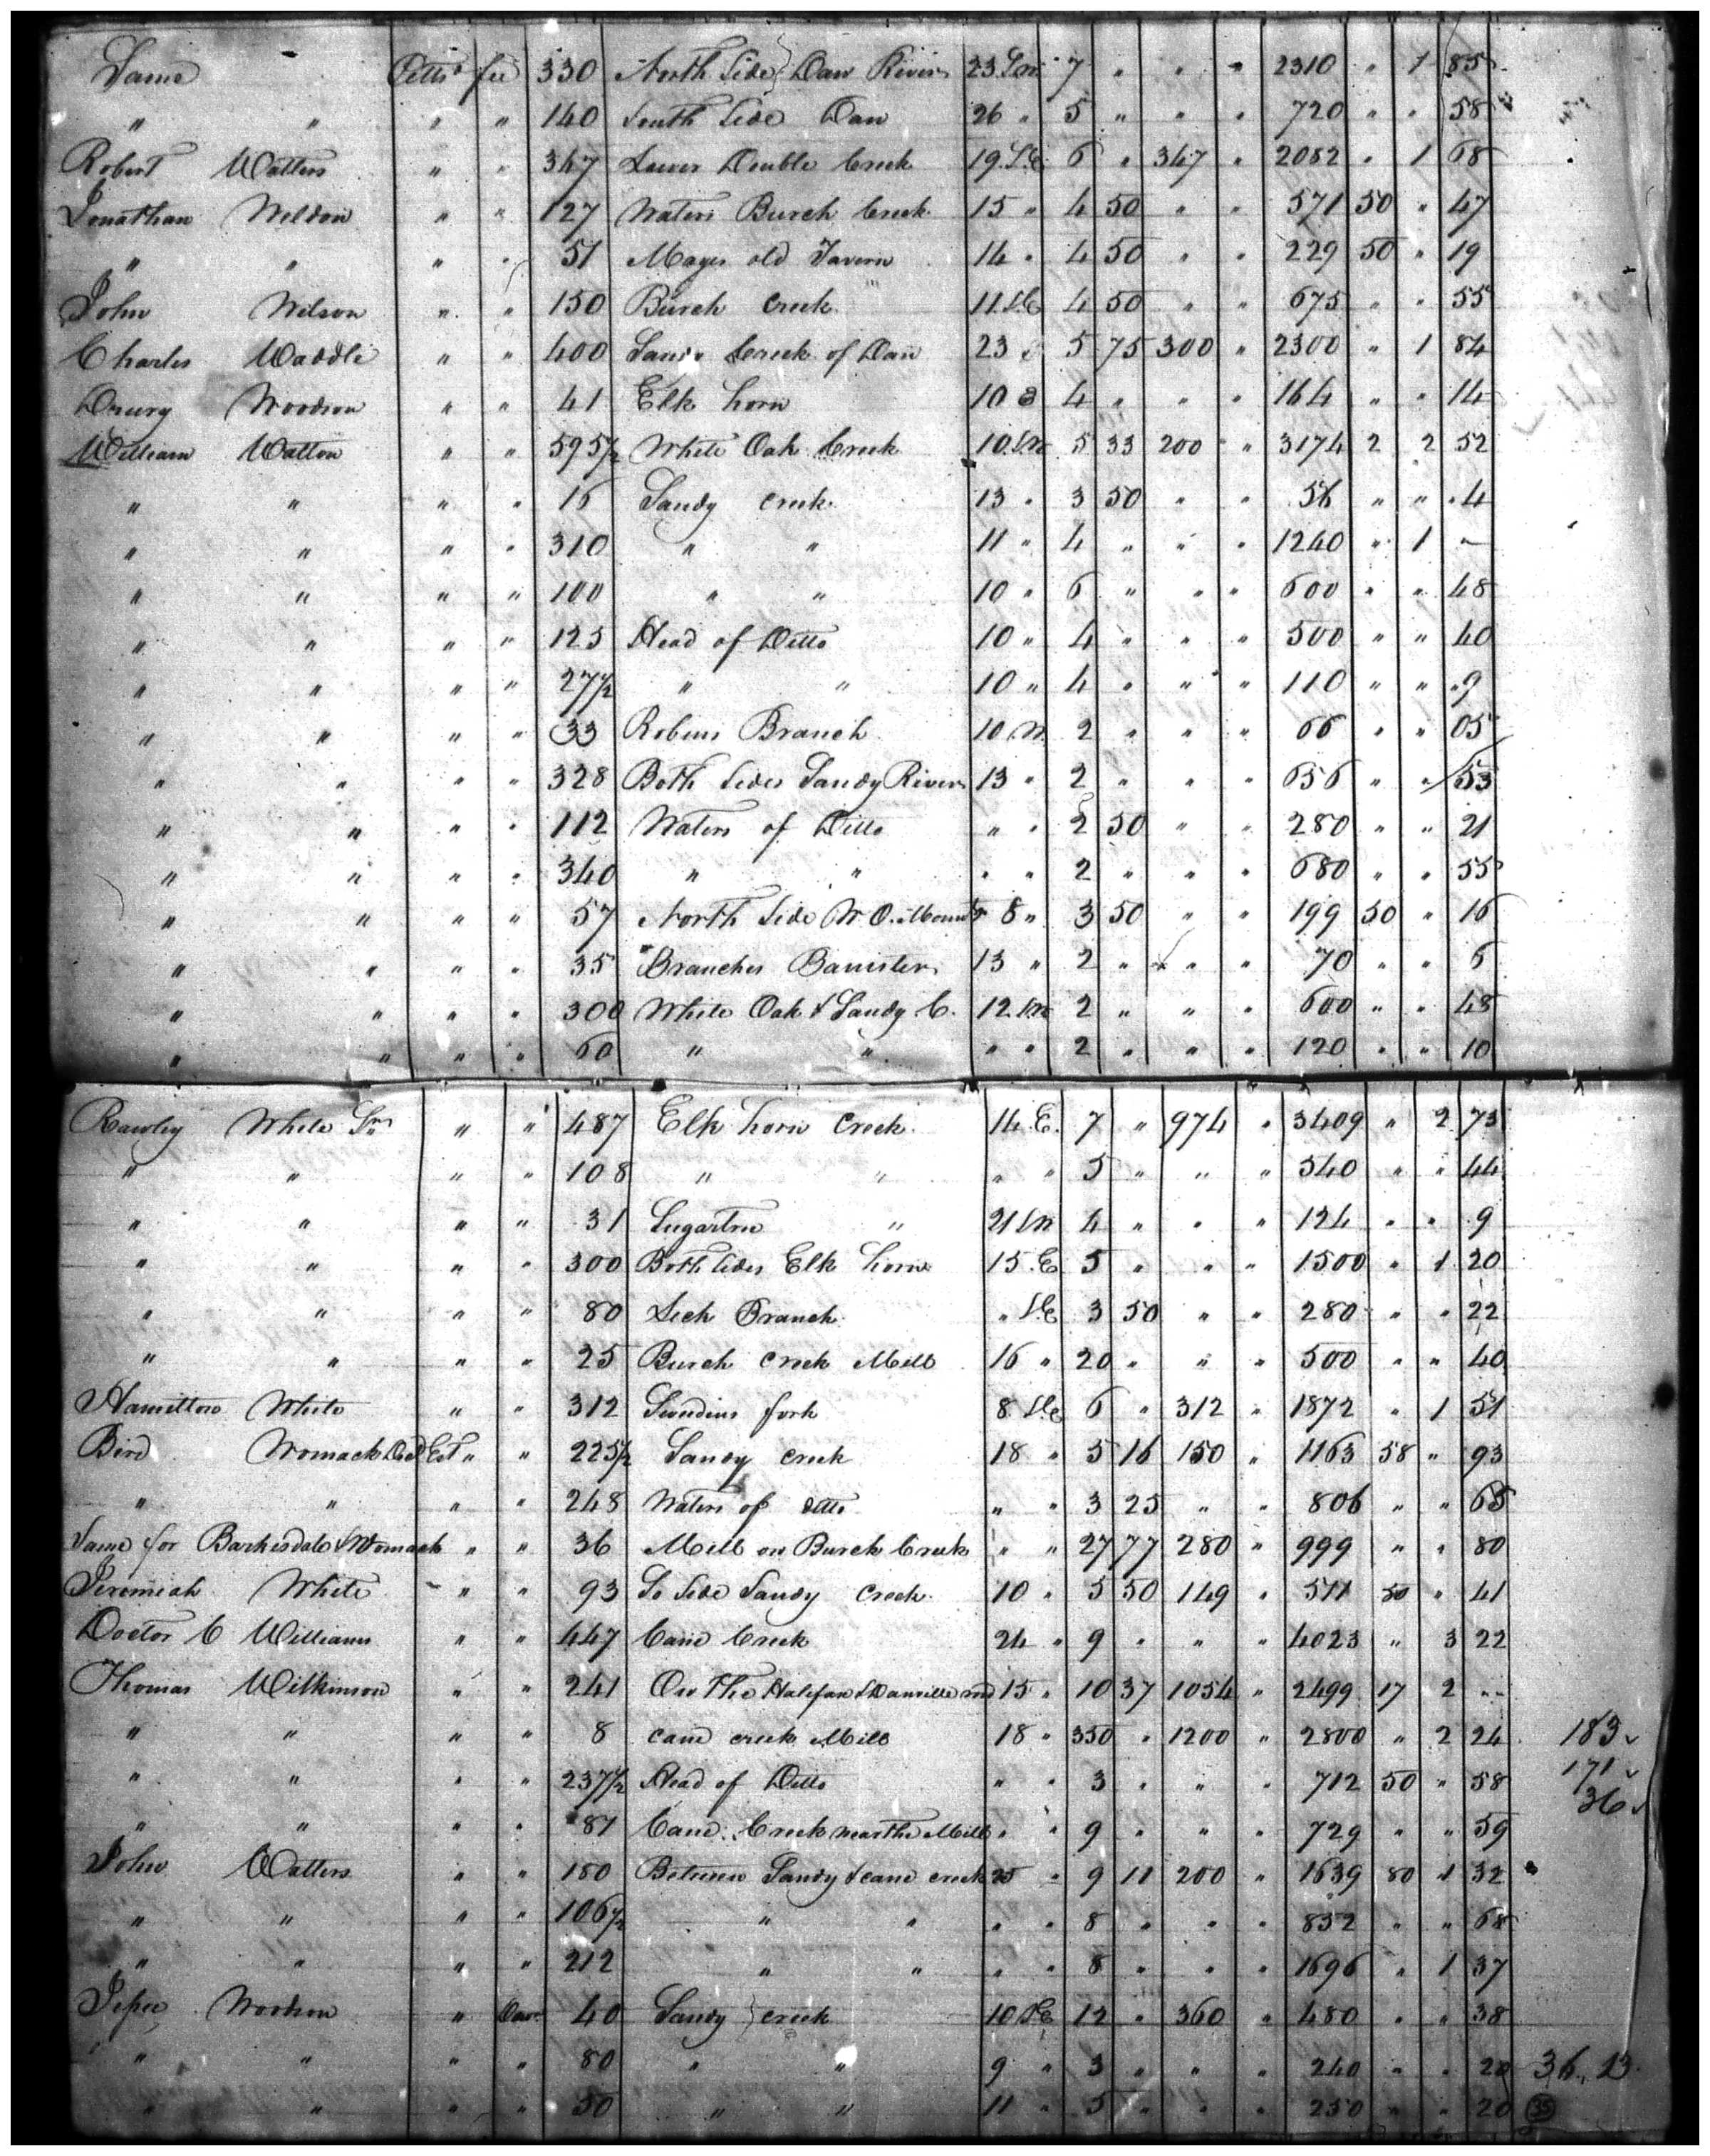 Same " Pitts^a fee 330 North Side Dan River 23 S.W. 7 " " " 2310 " 1 85
" " " " 140 South Side Dan 26 " 5 " " " 720 " " 58
Robert Watters " " 347 Lower Double Creek 19 S.E. 6 " 347 " 2082 " 1 68
Jonathan Weldon " " 127 Waters Burch Creek 15 " 4 50 " " 571 50 " 47
" " " " 51 Mays old Tavern 14 " 4 50 " " 229 50 " 19
John Wilson " " 150 Burch Creek 11 S.E 4 50 " " 675 " " 55
Charles Waddle " " 400 Sandy Creek of Dan 23 5 75 300 " 2300 " 1 84
Drury Woodson " " 41 Elk horn 10 4 " " " 164 " " 14
William Walton " " 595½ White Oak Creek 10 S.W 5 33 200 " " 3174 2 2 52
" " " " 16 Sandy creek 13 " 3 50 " " 56 " " 4
" " " " 310 " " 11 " 4 " " " 1240 " 1 -
" " " " 100 " " 10 " 6 " " " 600 " " 48
" " " " 125 Head of Ditto 10 " 4 " " " 500 " " 40
" " " " 27½ " " 10 " 4 " " " 110 " " 9
" " " " 33 Robins Branch 10 W. 2 " " " 66 " " 05
" " " " 328 Both Sides Sandy River 13 " 2 " " " 656 " " 53
" " " " 112 Waters of Ditto " " 2 50 " " 280 " " 21
" " " " 340 " " " " 2 " " " 680 " " 55
" " " " 57 North Side W. O. Mount 8 " 3 50 " " 199 50 " 16
" " " " 35 Branches Banister 13 " 2 " " " 70 " " 6
" " " " 300 White Oak & Sandy C. 12 S.W 2 " " " 600 " " 48
" " " " 60 " " " " 2 " " " 120 " " 10
Rawley White Sr " " 487 Elk horn Creek 14 E. 7 " 974 " 3409 " 2 73
" " " " 108 " " " " 5 " " " 540 " " 44
" " " " 31 Sugartree " 21 S.W 4 " " " 124 " " 9
" " " " 300 Both Sides Elk horn 15 E 5 " " " 1500 " 1 20
" " " " 80 Lick Branch " S.E 3 50 " " 280 " " 22
" " " " 25 Burch Creek Mill 16 " 20 " " " 500 " " 40
Hamilton White " " 312 fork 8 S.E 6 " 312 " 1872 " 1 51
Bird Womack Decd Est " " 225½ Sandy creek 18 " 5 16 150 " 1163 58 " 93
" " " " 248 Waters of ditto " " 3 25 " " 806 " " 65
Same for Barkesdale & Womack " " 36 Mill on Burch Creek " " 27 77 280 " 999 " " 80
Jeremiah White " " 93 So Side Sandy Creek 10 " 5 50 149 " 511 50 " 41
Doctor C Williams " " 447 Cane Creek 24 " 9 " " " 4023 " 3 22
Thomas Wilkinson " " 241 On The Halifax & Danville rod 15 " 10 37 1054 " 2499 17 2 --
" " " " 8 cane creek Mill 18 " 350 " 1200 " 2800 " 2 24 183
" " " " 237½ Head of Ditto " " 3 " " " 712 50 " 58 171
36
" " " " 81 Cane Creek near the Mill " " 9 " " " 729 " " 59
John Watters " " 180 Between Sandy & cane creek 25 " 9 11 200 " 1639 80 1 32
" " " " 106½ " " " " 8 " " " 852 " " 68
" " " " 212 " " " " 8 " " " 1696 " 1 37
Jesse Woodson " Dan 40 Sandy creek 10 S.E 12 " 360 " 480 " " 38
" " " " 80 " " 9 " 3 " " " 240 " " 20 36.. 23
" " " " 50 " " 11 " 5 " " " 250 " " 20 35